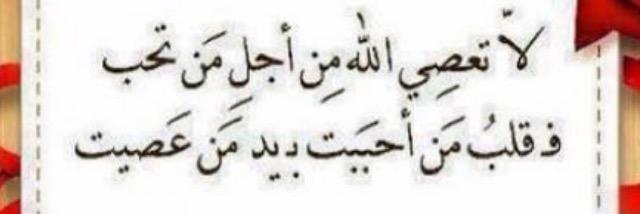 لاّ تعصِي الله مِن أجلِ مَن تحب
فـ قلبُ مَن أحبَبت بـيد مَن عَصيت